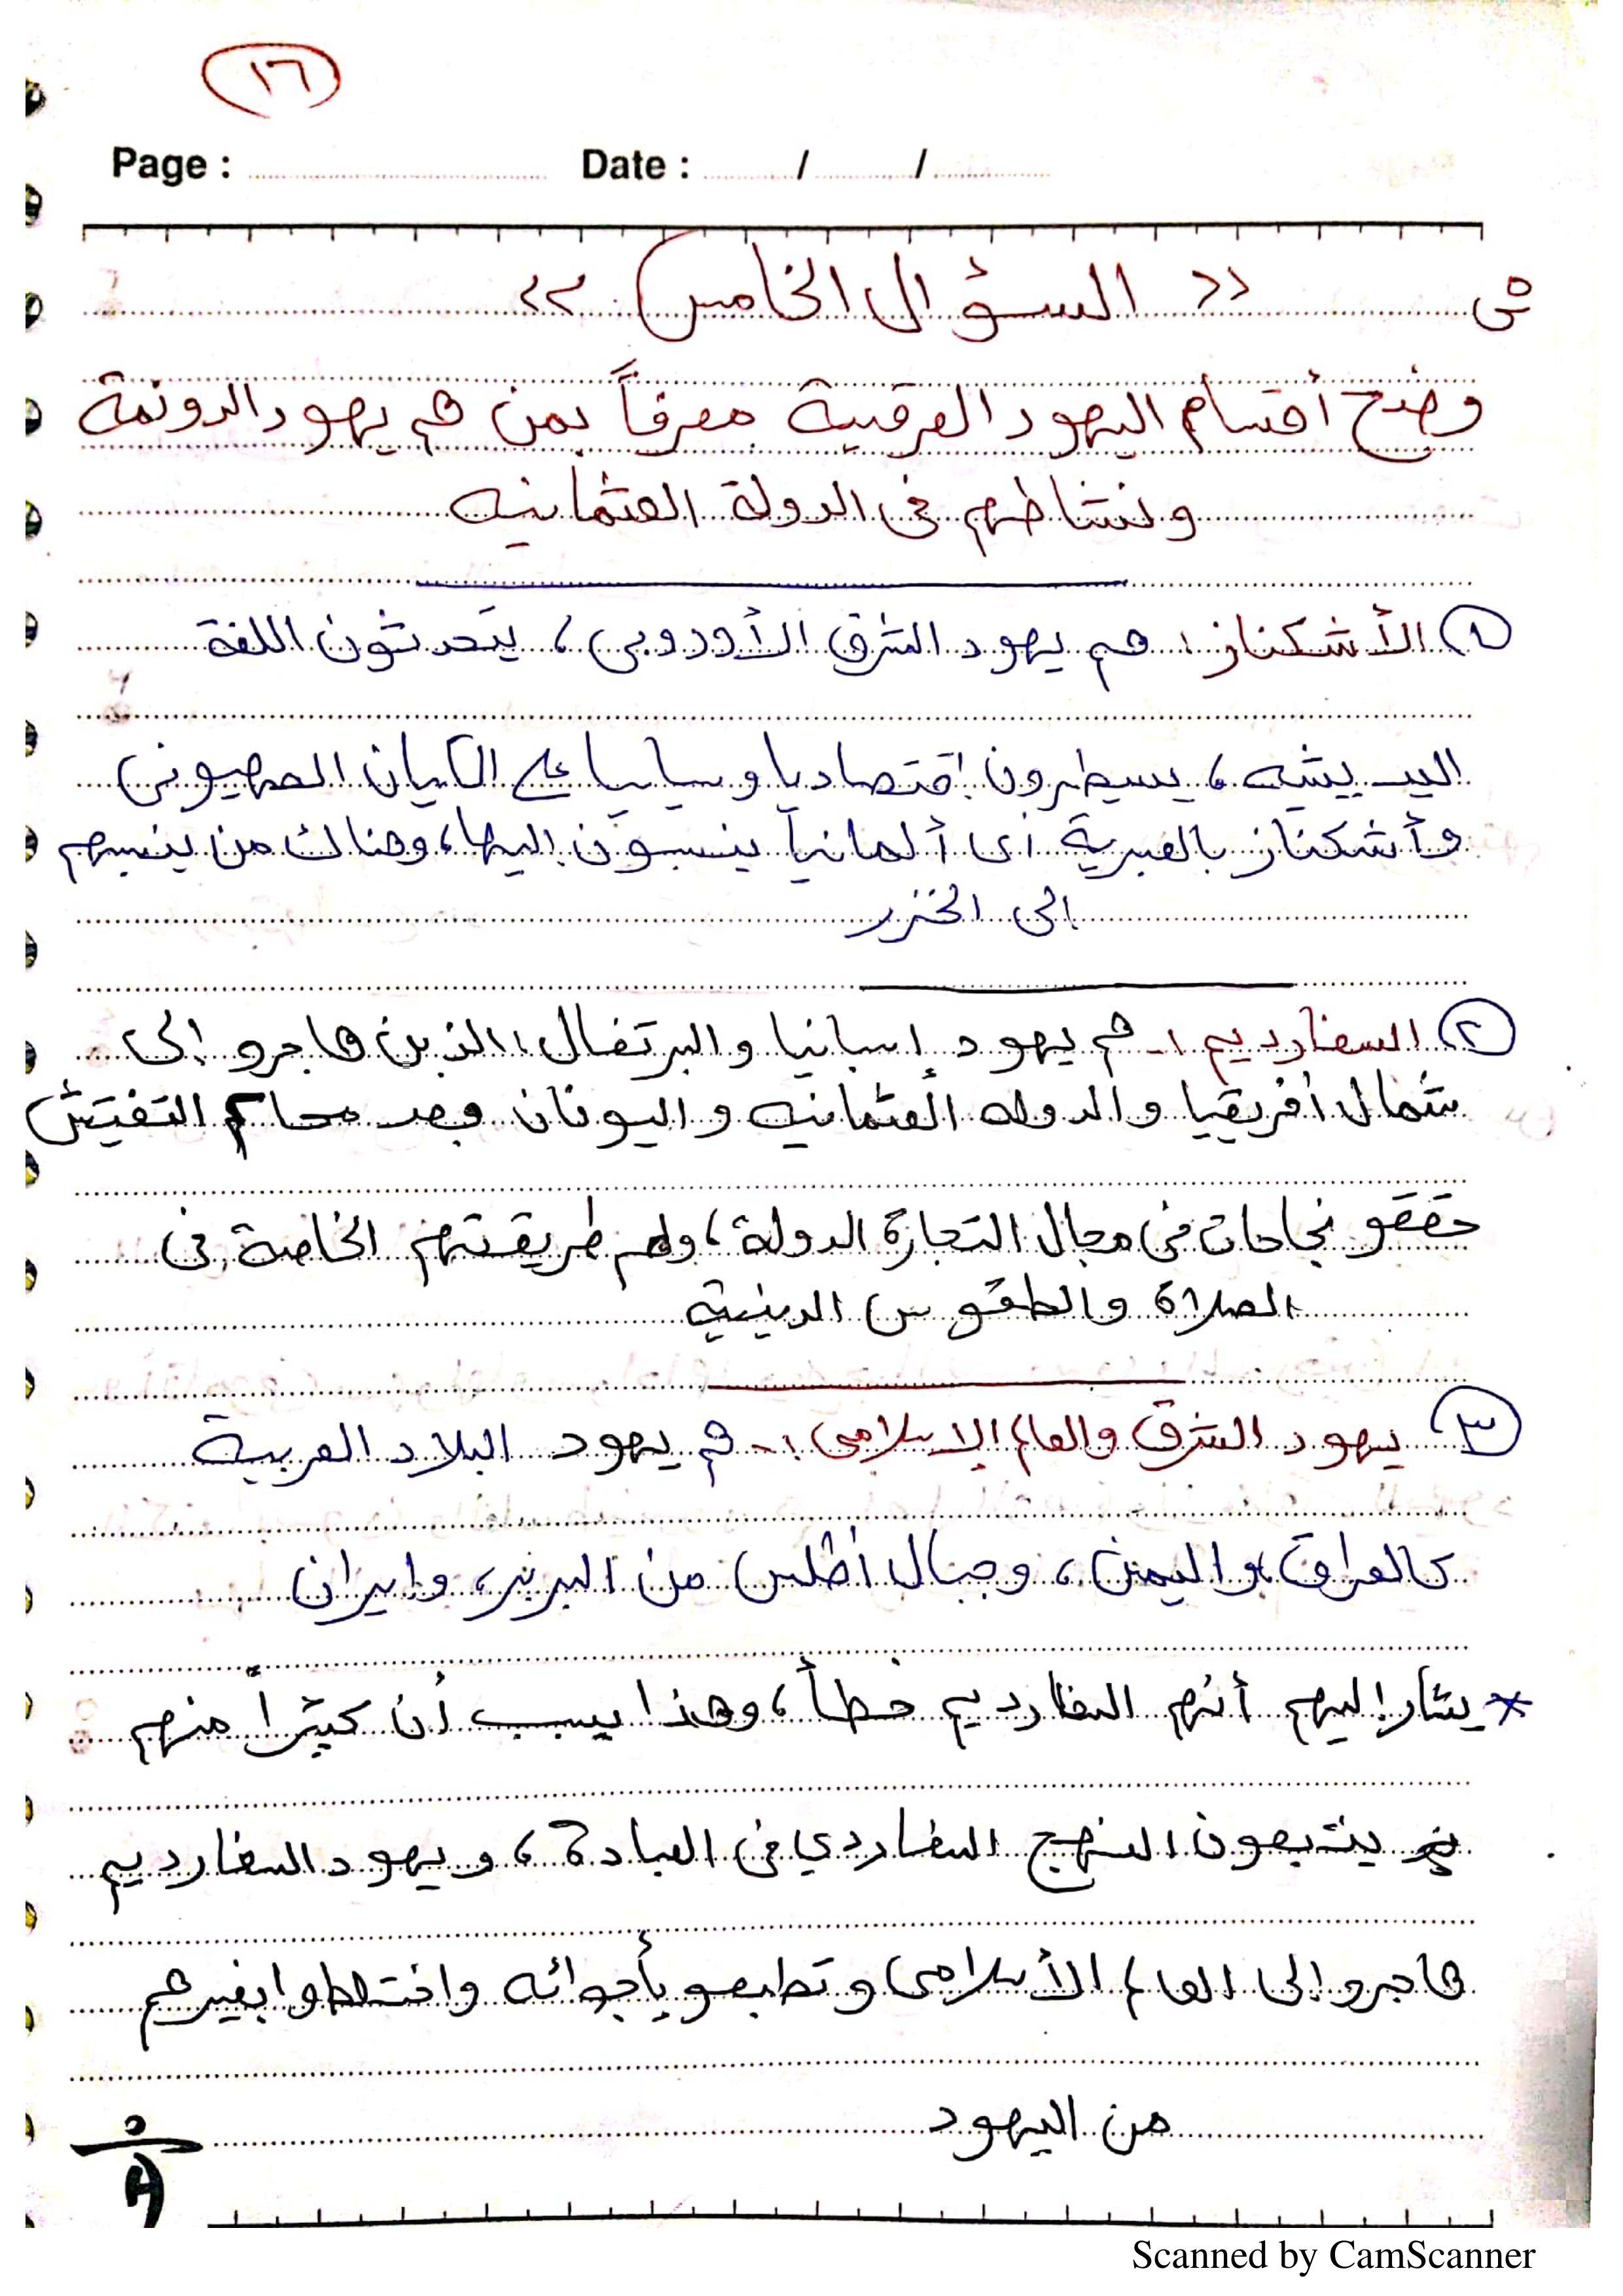 ١٦
Page : Date : / /
س >> السؤال الخامس <<
وضح أقسام اليهود العرقية معرفاً بمن هم يهود الدونمة
ونشاطهم في الدولة العثمانيه
١ الأشكناز: هم يهود الشرق الأوروبي، يتحدثون اللغة
اليديشيه، يسيطرون إقتصاديا وسياسيا على الكيان الصهيوني
وأشكناز بالعبرية أى ألمانيا ينسبون إليها، وهناك من ينسبهم
الى الخزر
٢ السفارديم :- هم يهود إسبانيا والبرتغال، الذين هاجرو إلى
شمال أفريقيا والدوله العثمانيه واليونان وبعد محاكم التفتيش
حققو نجاحات في مجال التجارة الدولة، ولهم طريقتهم الخاصة في
الصلاة والطقوس الدينية
٣ يهود الشرق والعالم الإسلامى :- هم يهود البلاد العربية
كالعراق واليمن، وجبال أطلس من البربر، وايران
* يشار إليهم أنهم السفارديم خطأ، وهذا بسبب أن كثيراً منهم
يتبعون المنهج السفاردي في العبادة، ويهود السفارديم
هاجرو إلى العالم الأسلامى وتطبعو بأجوائه واختلطوا بغيرهم
من اليهود
Scanned by CamScanner